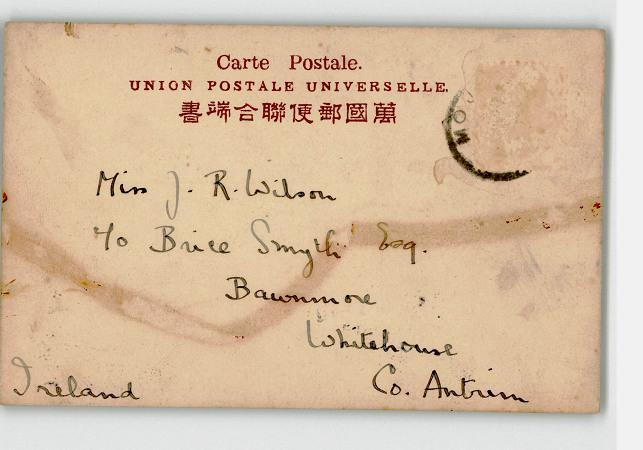 Carte Postale.
UNION POSTALE UNIVERSELLE.
書端合聯便郵國萬
MO
Miss J. R. Wilson
c/o Brice Smyth Esq.
Bawnmore
Whitehouse
Co. Antrim
Ireland